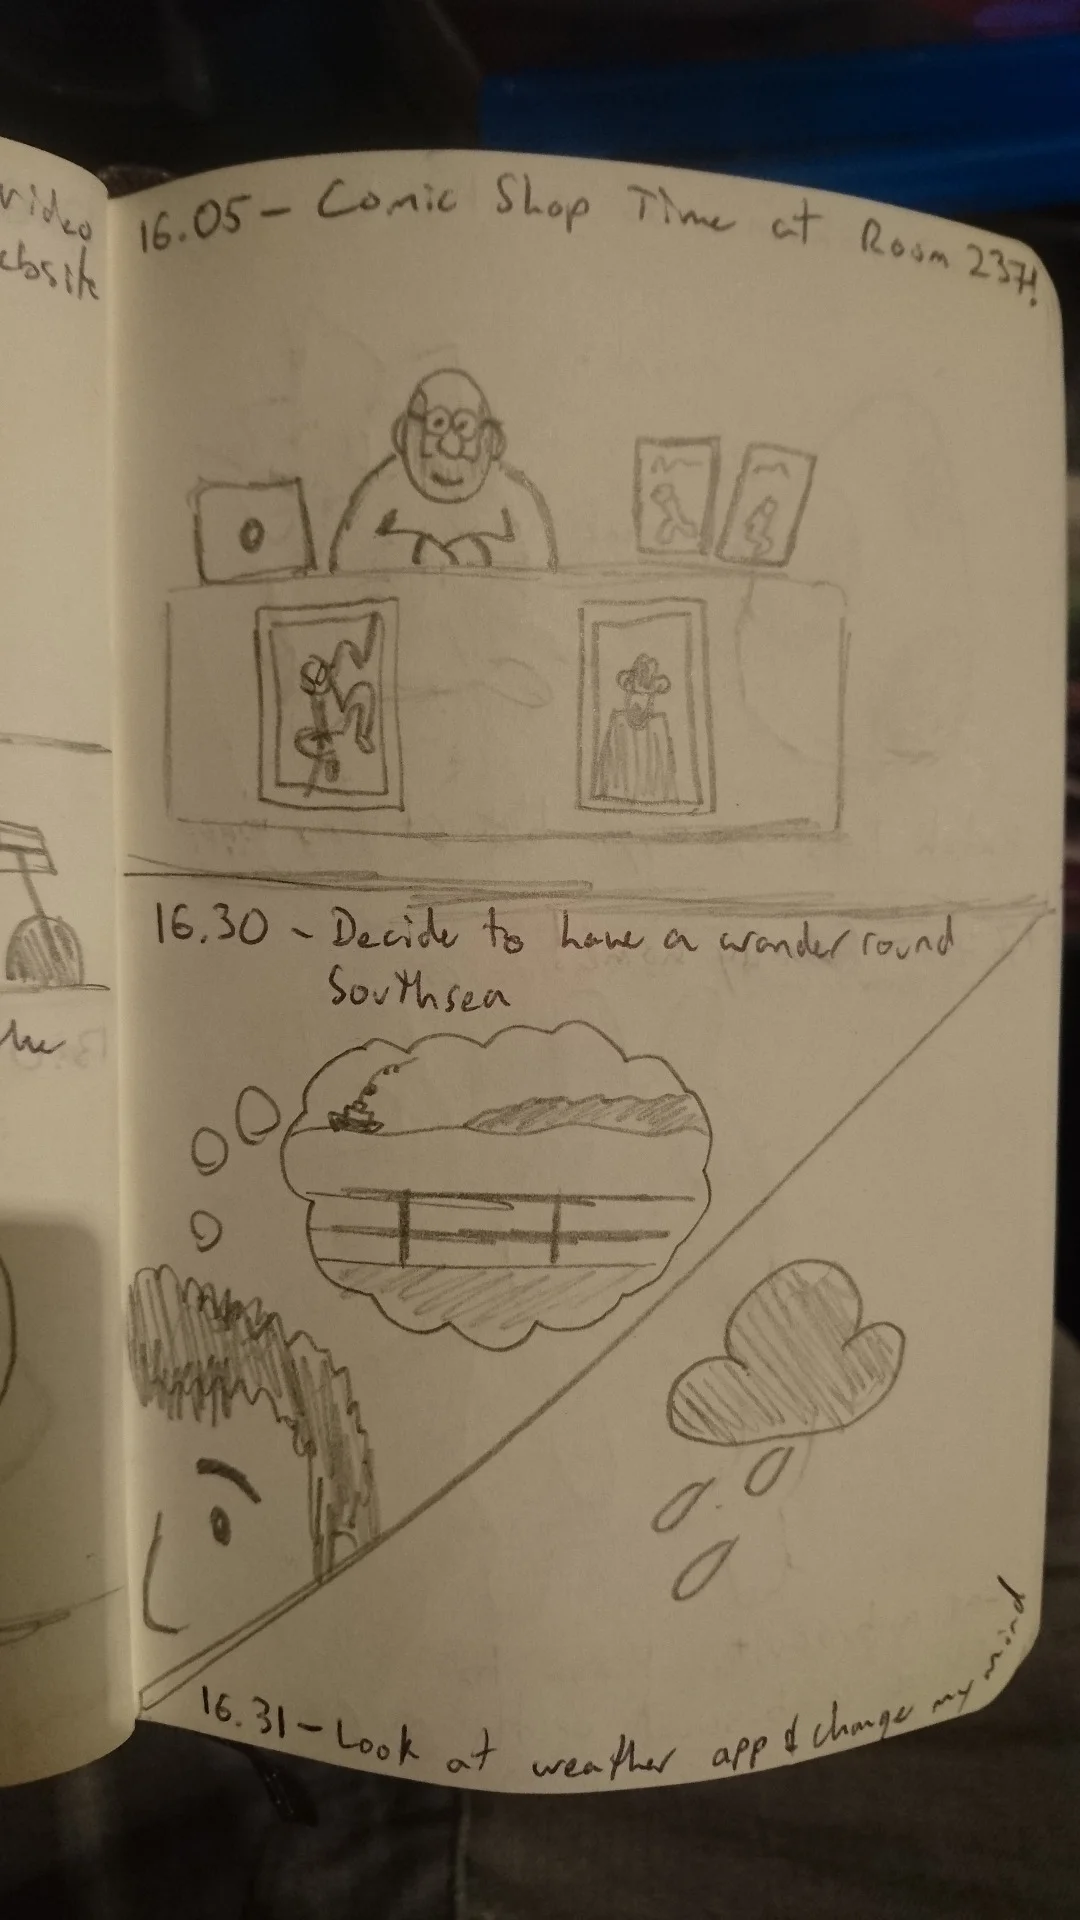 video
16.05 - Comic Shop Time at Room 237!
16.30 - Decide to have a wander round
Southsea
16.31 - Look at weather app & change my mind